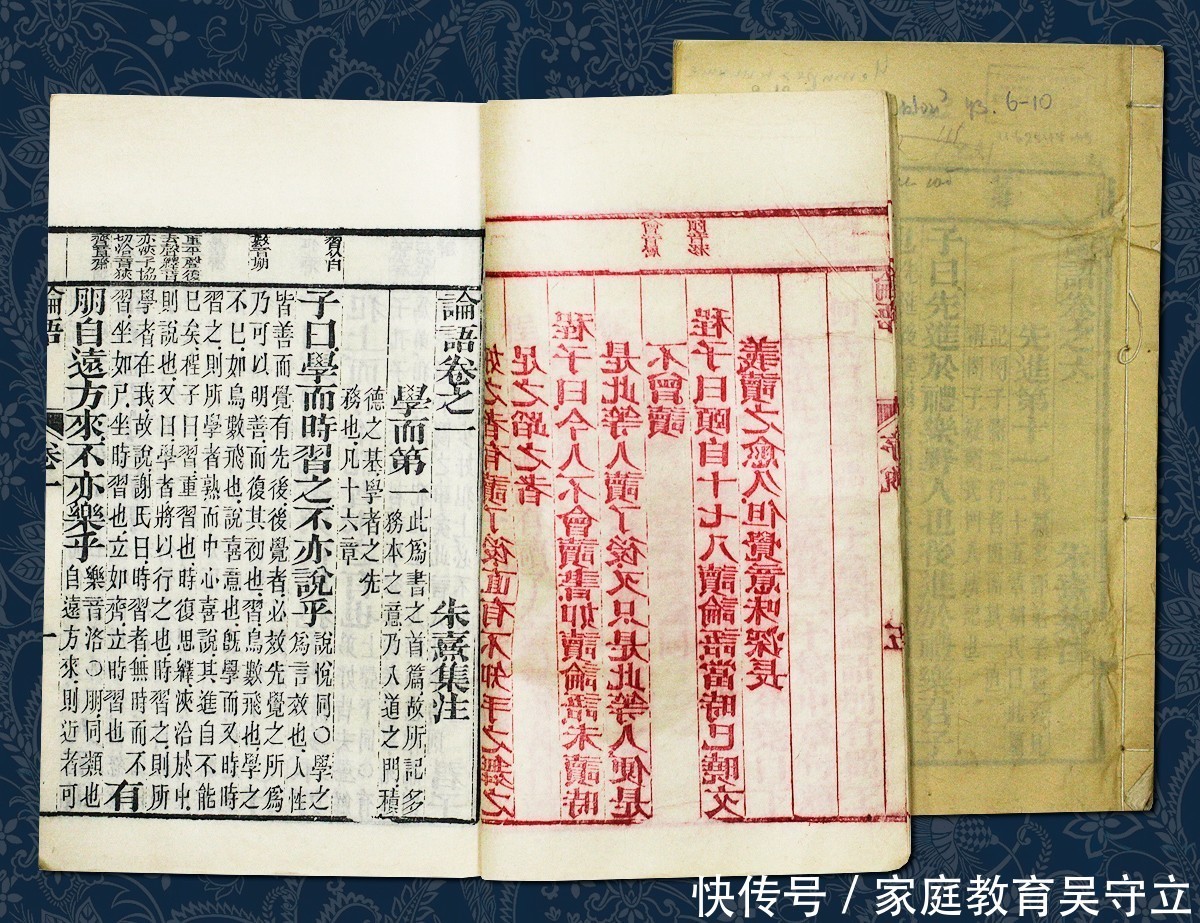 論語卷之一
朱熹集注
學而第一
此爲書之首篇故所記多
務本之意乃入道之門積
德之基學者之先
務也凡十六章
子曰學而時習之不亦說乎
說悅同○學之
爲言效也人性
皆善而覺有先後後覺者必效先覺之所爲
乃可以明善而復其初也習鳥數飛也學之
不已如鳥數飛也說喜意也旣學而又時時
習之則所學者熟而中心喜說其進自不能
已矣程子曰習重習也時復思繹浹洽於中
則說也又曰學者將以行之也時習之則所
學者在我故說謝氏曰時習者無時而不
習坐如尸坐時習也立如齊立時習也
有
朋自遠方來不亦樂乎
樂音洛○朋同類也
自遠方來則近者可
論語
卷一
一
之者有讀了後直有不知手之舞之
足之蹈之者
程子曰今人不會讀書如讀論語未讀時
是此等人讀了後又只是此等人便是
不會讀
程子曰頤自十七八讀論語當時已曉文
義讀之愈久但覺意味深長
論語
五
論語卷之六
先進第十一
子曰先進於禮樂野人也
6-10
快传号 / 家庭教育吴守立